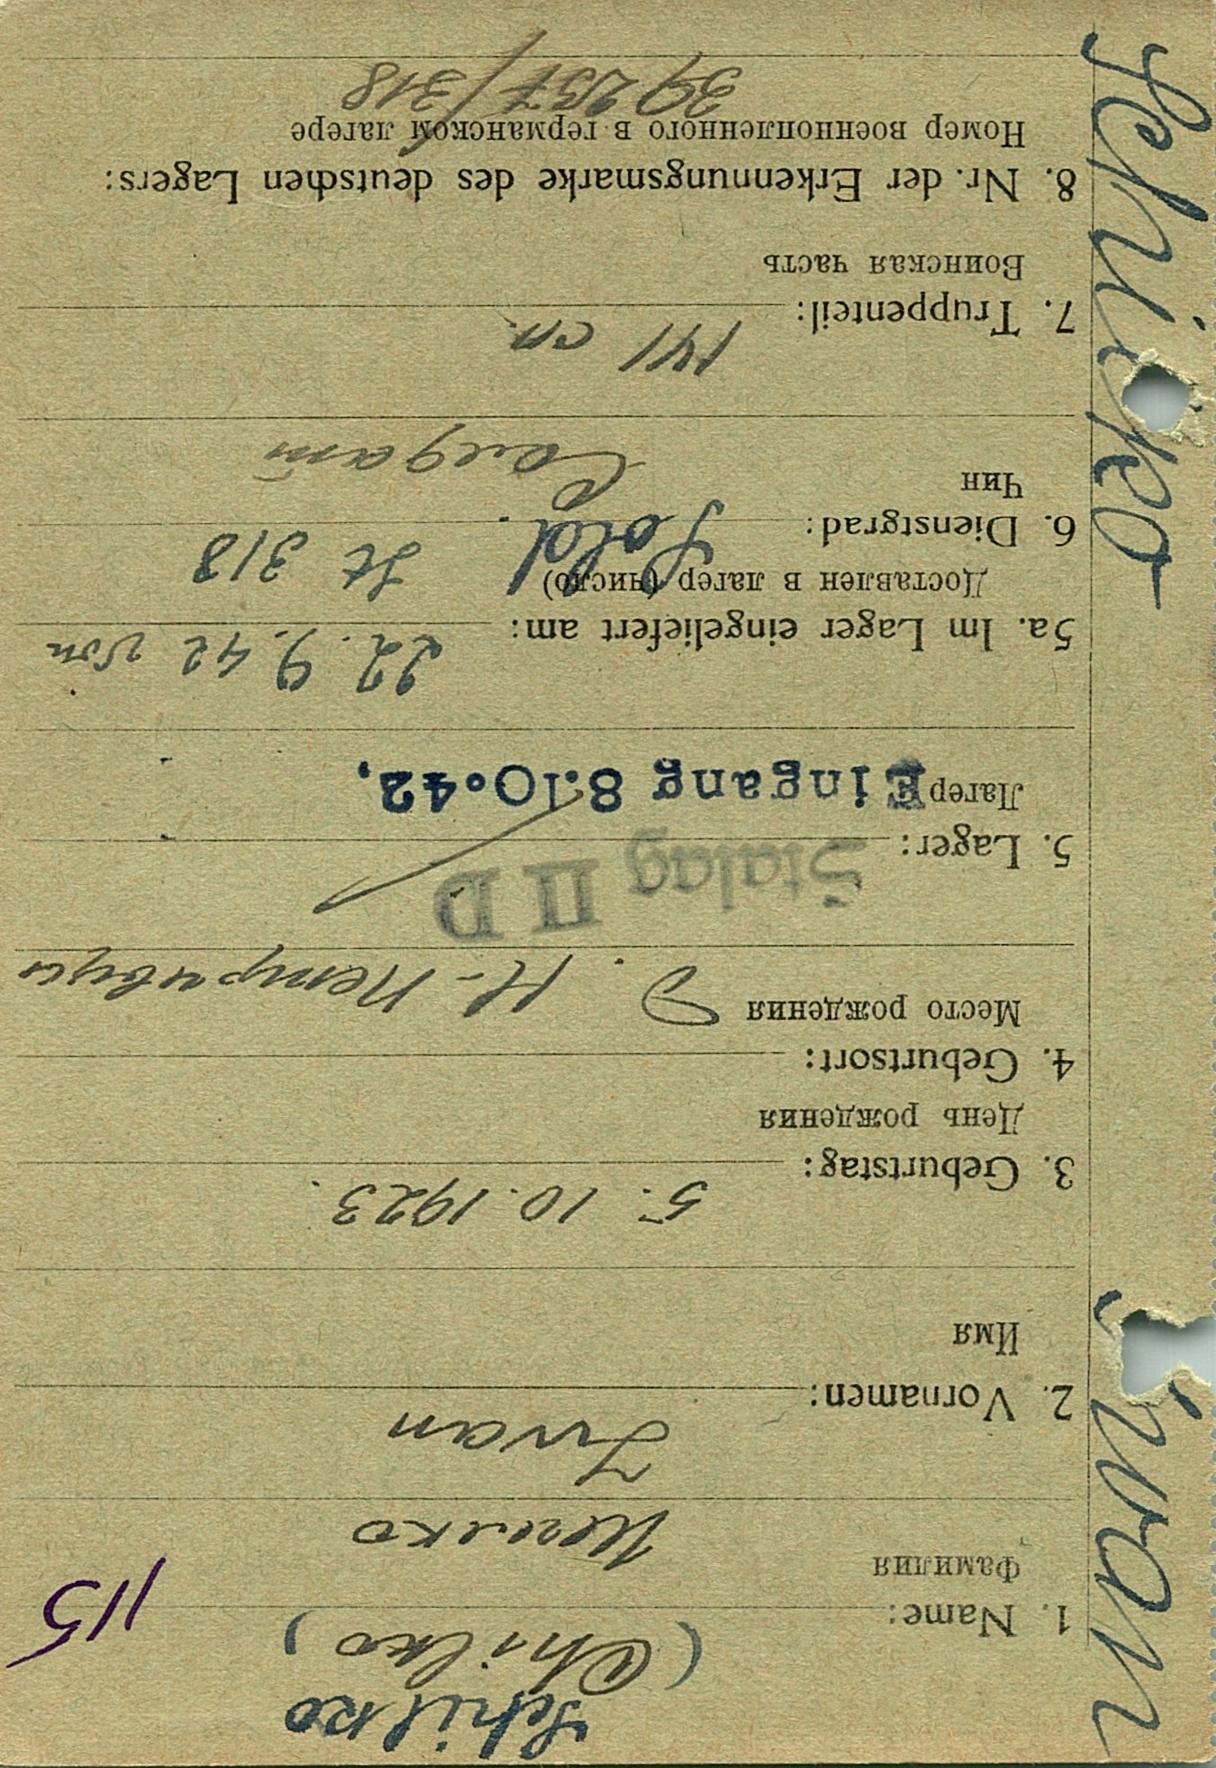 Schilko, Iwan
115
Schilko
(Chilko)
1. Name:
Фамилия
Шилко
2. Vornamen:
Iwan
Имя
3. Geburtstag:
5. 10. 1923.
День рождения
4. Geburtsort:
Место рождения
д. Н-
5. Lager:
Stalag II D
Лагер
Eingang 8.10.42.
5a. Im Lager eingeliefert am:
22. 9. 42 von
Доставлен в лагер (число)
St 318
6. Dienstgrad:
Sold.
Чин
Солдат
7. Truppenteil:
141 сп.
Воинская часть
8. Nr. der Erkennungsmarke des deutschen Lagers:
Номер военнопленного в германском лагере
39257/318